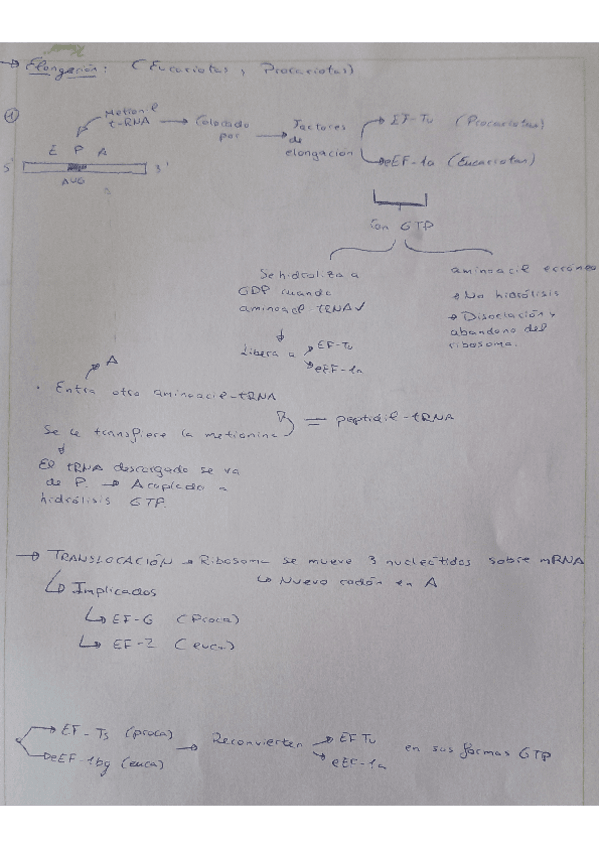 → Elongación: (Eucariotas y Procariotas)
① Metionil t-RNA → Colocado por → Factores de elongación → EF-Tu (Procariotas)
→ eEF-1a (Eucariotas)
E P A
5' 3'
AUG
son GTP
Se hidroliza a GDP cuando aminoacil tRNA ✓
↓
Libera a → EF-Tu
→ eEF-1a
aminoacil erróneo
→ No hidrólisis
→ Disociación y abandono del ribosoma.
A
· Entra otro aminoacil-tRNA
Se le transfiere la metionina = peptidil-tRNA
↓
El tRNA descargado se va
de P. → Acoplado a
hidrólisis GTP.
→ TRANSLOCACIÓN → Ribosoma se mueve 3 nucleótidos sobre mRNA
↳ Nuevo codón en A
↳ Implicados
↳ EF-G (Proca)
↳ EF-2 (euca)
→ EF-Ts (proca)
→ eEF-1bg (euca)
→ Reconvierten → EF Tu
→ eEF-1a
en sus formas GTP